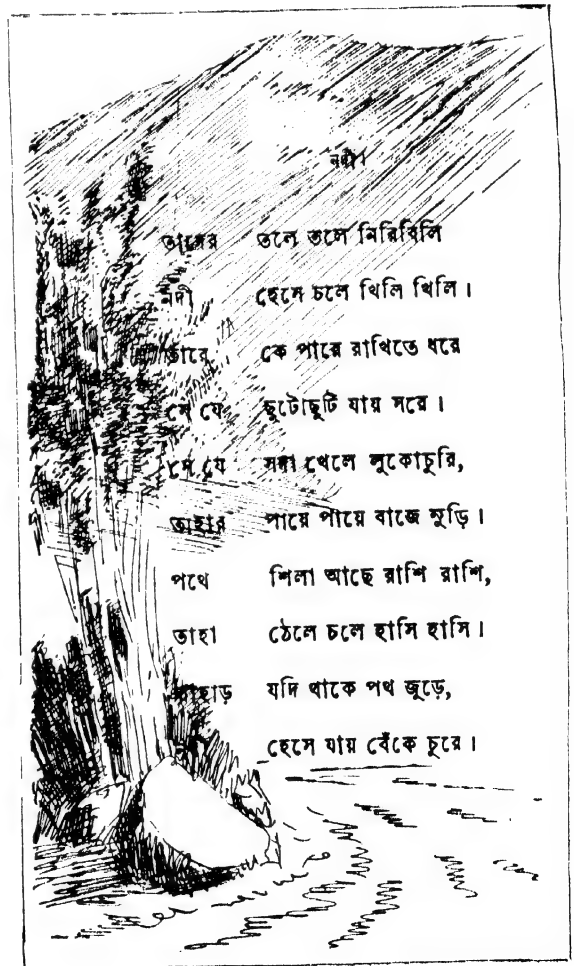 নদী।
তাদের তলে তলে নিরিবিলি
নদী হেসে চলে খিলি খিলি।
তারে কে পারে রাখিতে ধরে
সে যে ছুটোছুটি যায় সরে।
সে যে সদা খেলে লুকোচুরি,
তাহার পায়ে পায়ে বাজে নুড়ি।
পথে শিলা আছে রাশি রাশি,
তাহা ঠেলে চলে হাসি হাসি।
পাহাড় যদি থাকে পথ জুড়ে,
হেসে যায় বেঁকে চুরে।